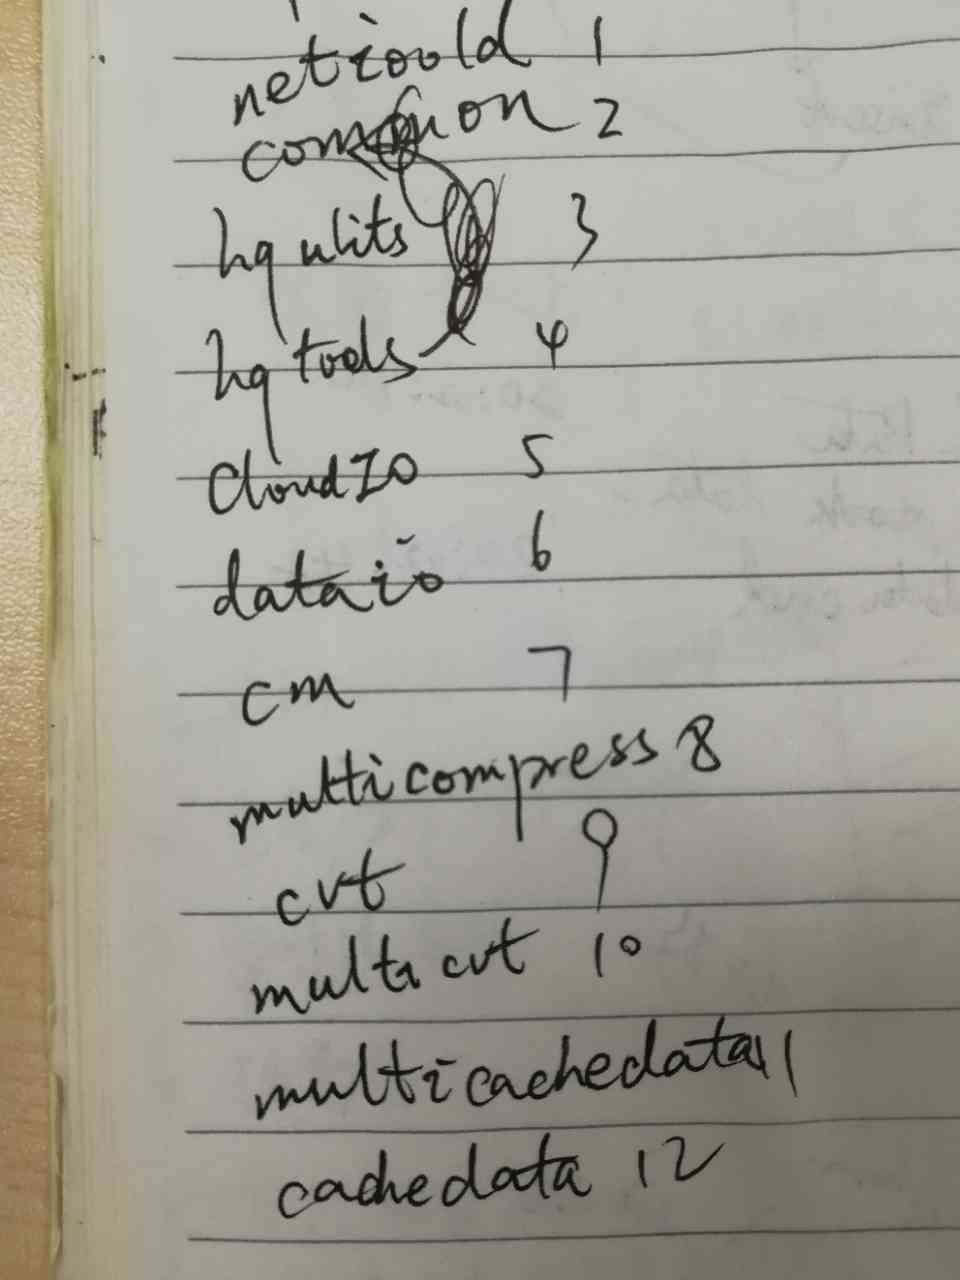 netioold 1
common 2
hq ulits 3
hq tools 4
CloudIO 5
dataio 6
cm 7
multicompress 8
cvt 9
multi cvt 10
multicachedata 11
cachedata 12